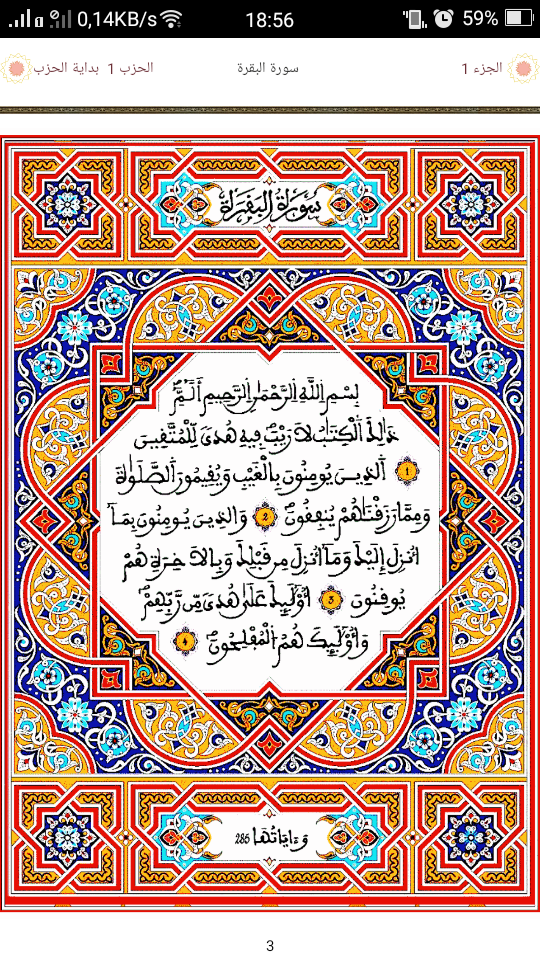 0,14KB/s 18:56 59%
الجزء 1 سورة البقرة الحزب 1 بداية الحزب
سورة البقرة
بسم الله الرحمن الرحيم ألم
ذلك الكتاب لا ريب فيه هدى للمتقين
1 الذين يومنون بالغيب ويقيمون الصلوة
ومما رزقناهم ينفقون 2 والذين يومنون بما
أنزل إليك وما أنزل من قبلك وبالاخرة هم
يوقنون 3 أوليك على هدى من ربهم
وأوليك هم المفلحون 4
وءاياتها 285
3